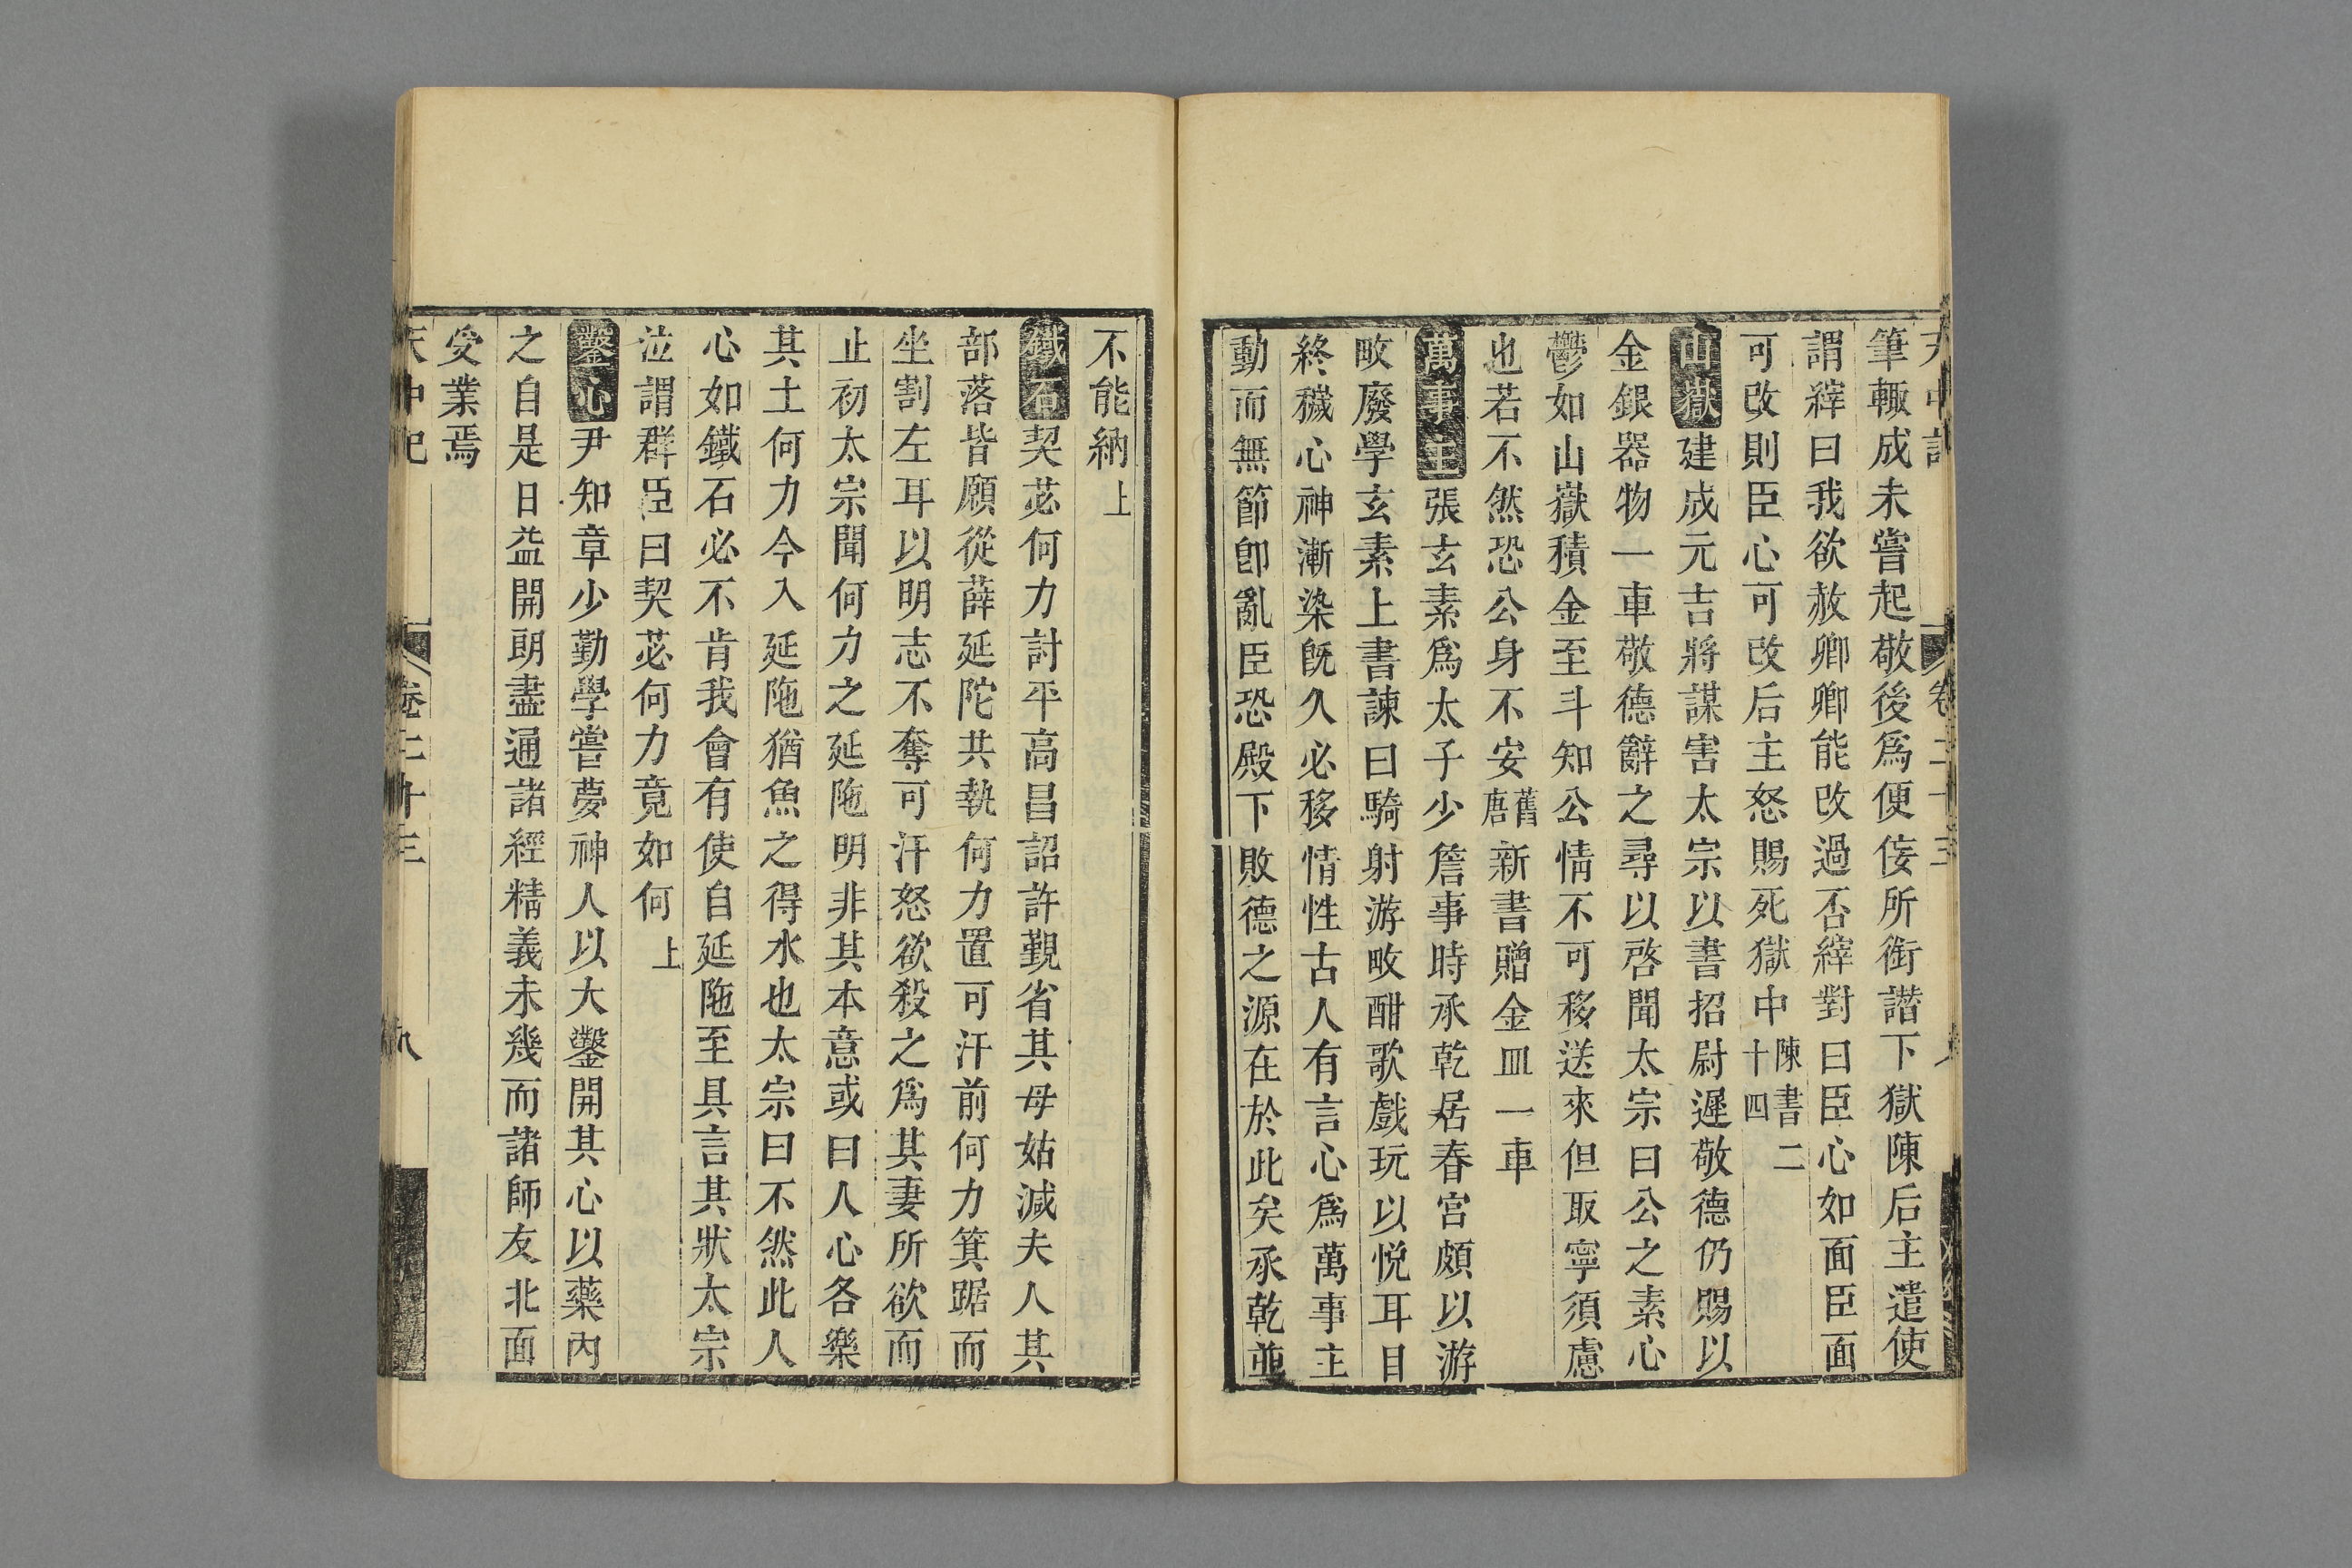 天中記
卷二十三
筆輙成未嘗起敬後爲便佞所銜譖下獄陳后主遣使
謂縡曰我欲赦卿卿能改過否縡對曰臣心如面臣面
可改則臣心可改后主怒賜死獄中陳書二十四
山嶽建成元吉將謀害太宗以書招尉遲敬德仍賜以
金銀器物一車敬德辭之尋以啓聞太宗曰公之素心
鬱如山嶽積金至斗知公情不可移送來但取寧須慮
也若不然恐公身不安舊唐新書贈金皿一車
萬事主張玄素爲太子少詹事時承乾居春宮頗以游
畋廢學玄素上書諫曰騎射游畋酣歌戲玩以悦耳目
終穢心神漸染旣久必移情性古人有言心爲萬事主
動而無節卽亂臣恐殿下敗德之源在於此矣承乾並
不能納上
鐵石契苾何力討平高昌詔許覲省其母姑減夫人其
部落皆願從薛延陀共執何力置可汗前何力箕踞而
坐割左耳以明志不奪可汗怒欲殺之爲其妻所欲而
止初太宗聞何力之延陁明非其本意或曰人心各樂
其土何力今入延陁猶魚之得水也太宗曰不然此人
心如鐵石必不肯我會有使自延陁至具言其狀太宗
泣謂群臣曰契苾何力竟如何上
鑿心尹知章少勤學嘗夢神人以大鑿開其心以藥內
之自是日益開朗盡通諸經精義未幾而諸師友北面
受業焉
天中記
卷二十三
八